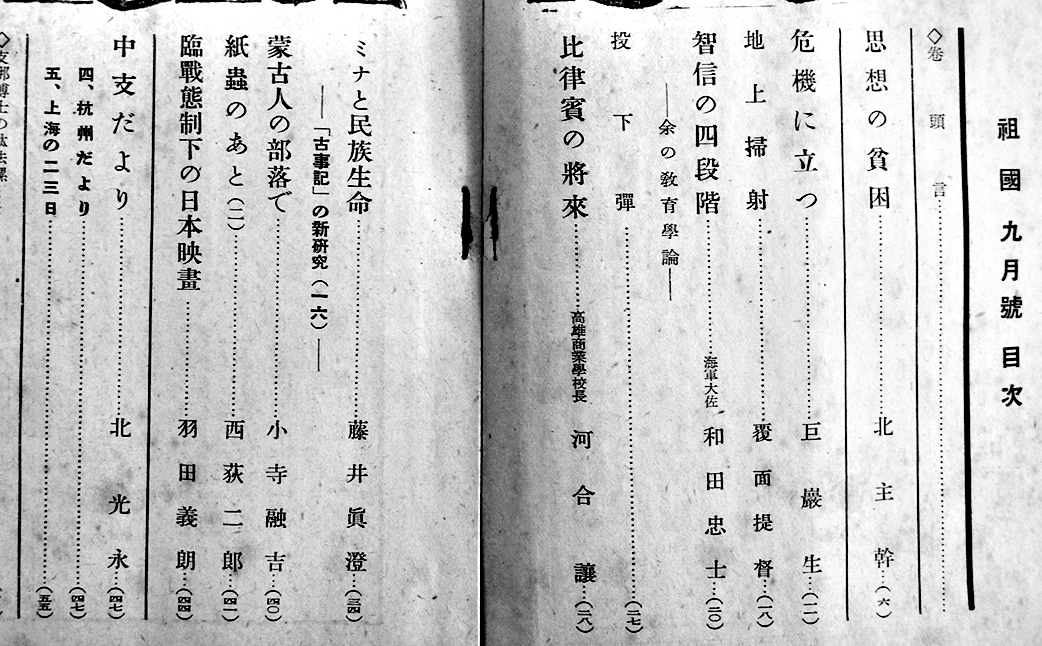 祖國 九月號 目次
◇卷頭言
思想の貧困 北主幹 (六)
危機に立つ 巨巖生 (一一)
地上掃射 覆面提督 (一八)
智信の四段階 海軍大佐 和田忠士 (二〇)
―余の敎育學論―
投下彈 (二七)
比律賓の將來 高雄商業學校長 河合讓 (二八)
ミナと民族生命 藤井眞澄 (三四)
―「古事記」の新硏究(一六)―
蒙古人の部落で 小寺融吉 (四〇)
紙蟲のあと(二) 西荻二郎 (四一)
臨戰態制下の日本映畫 羽田義朗 (四四)
中支だより 北光永 (四七)
四、杭州だより (四七)
五、上海の二三日 (五五)